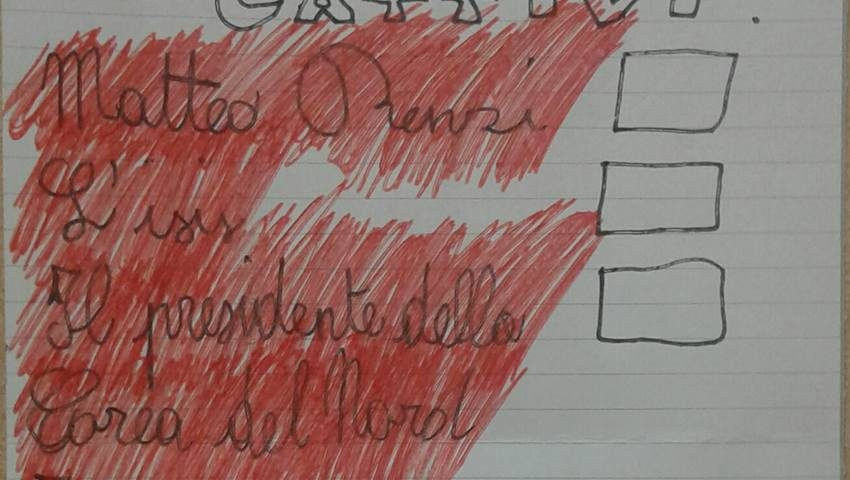 CATTIVI.
Matteo Renzi
L'isis
Il presidente della
Corea del Nord